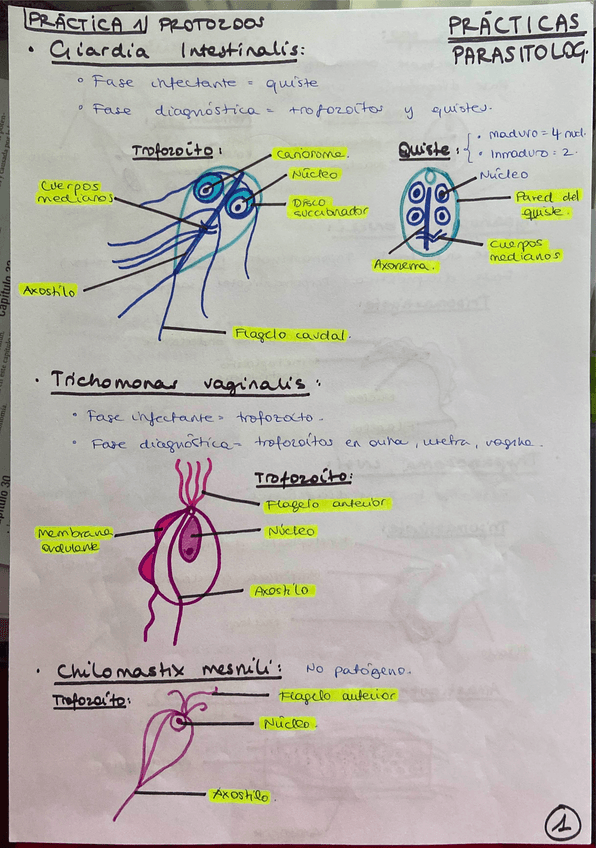 PRÁCTICA 1 PROTOZOOS
PRÁCTICAS
PARASITOLOG.
• Giardia Intestinalis:
◦ Fase infectante = quiste
◦ Fase diagnóstica = trofozoítos y quistes.
Trofozoíto:
Cariosoma.
Núcleo
Disco succionador
Cuerpos medianos
Axostilo
Flagelo caudal.
Quiste:
• maduro = 4 nucl.
• Inmaduro = 2.
Núcleo
Pared del quiste.
Cuerpos medianos
Axonema.
• Trichomonas vaginalis:
◦ Fase infectante = trofozoíto.
◦ Fase diagnóstica = trofozoítos en orina, uretra, vagina.
Trofozoíto:
Flagelo anterior
Núcleo
Membrana ondulante
Axostilo
• Chilomastix mesnili: No patógeno.
Trofozoíto:
Flagelo anterior
Núcleo.
Axostilo.
1